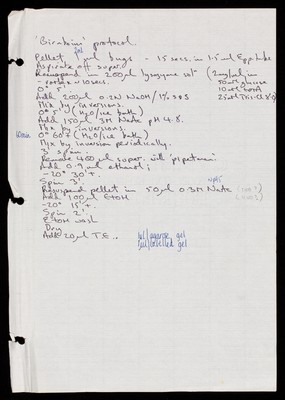 'Birnboim' protocol.
Pellet 1ml bugs - 15 secs. in 1.5ml Epp. tube
Aspirate off super.
Resuspend in 200µl lysozyme sol" (2mg/ml in
- vortex ~10secs. 50mM glucose
0° 5' 10mM EDTA
Add 200µl 0.2N NaOH / 1% SDS 25mM Tris-Cl 8)
Mix by inversions.
0° 5' (H2O/ice bath)
Add 150µl 3M NaAc pH 4.8.
Mix by inversions.
0° 60' + (H2O/ice bath)
Mix by inversion periodically.
3' spin.
Remove 400µl super. with pipetman
Add 0.9ml ethanol;
-20° 30'+.
Spin 2'
Resuspend pellet in 50µl 0.3M NaAc
Add 100µl EtOH
-20° 15'+.
Spin 2'.
EtOH wash
Dry
Add 20µl T.E..
1µl/agarose gel